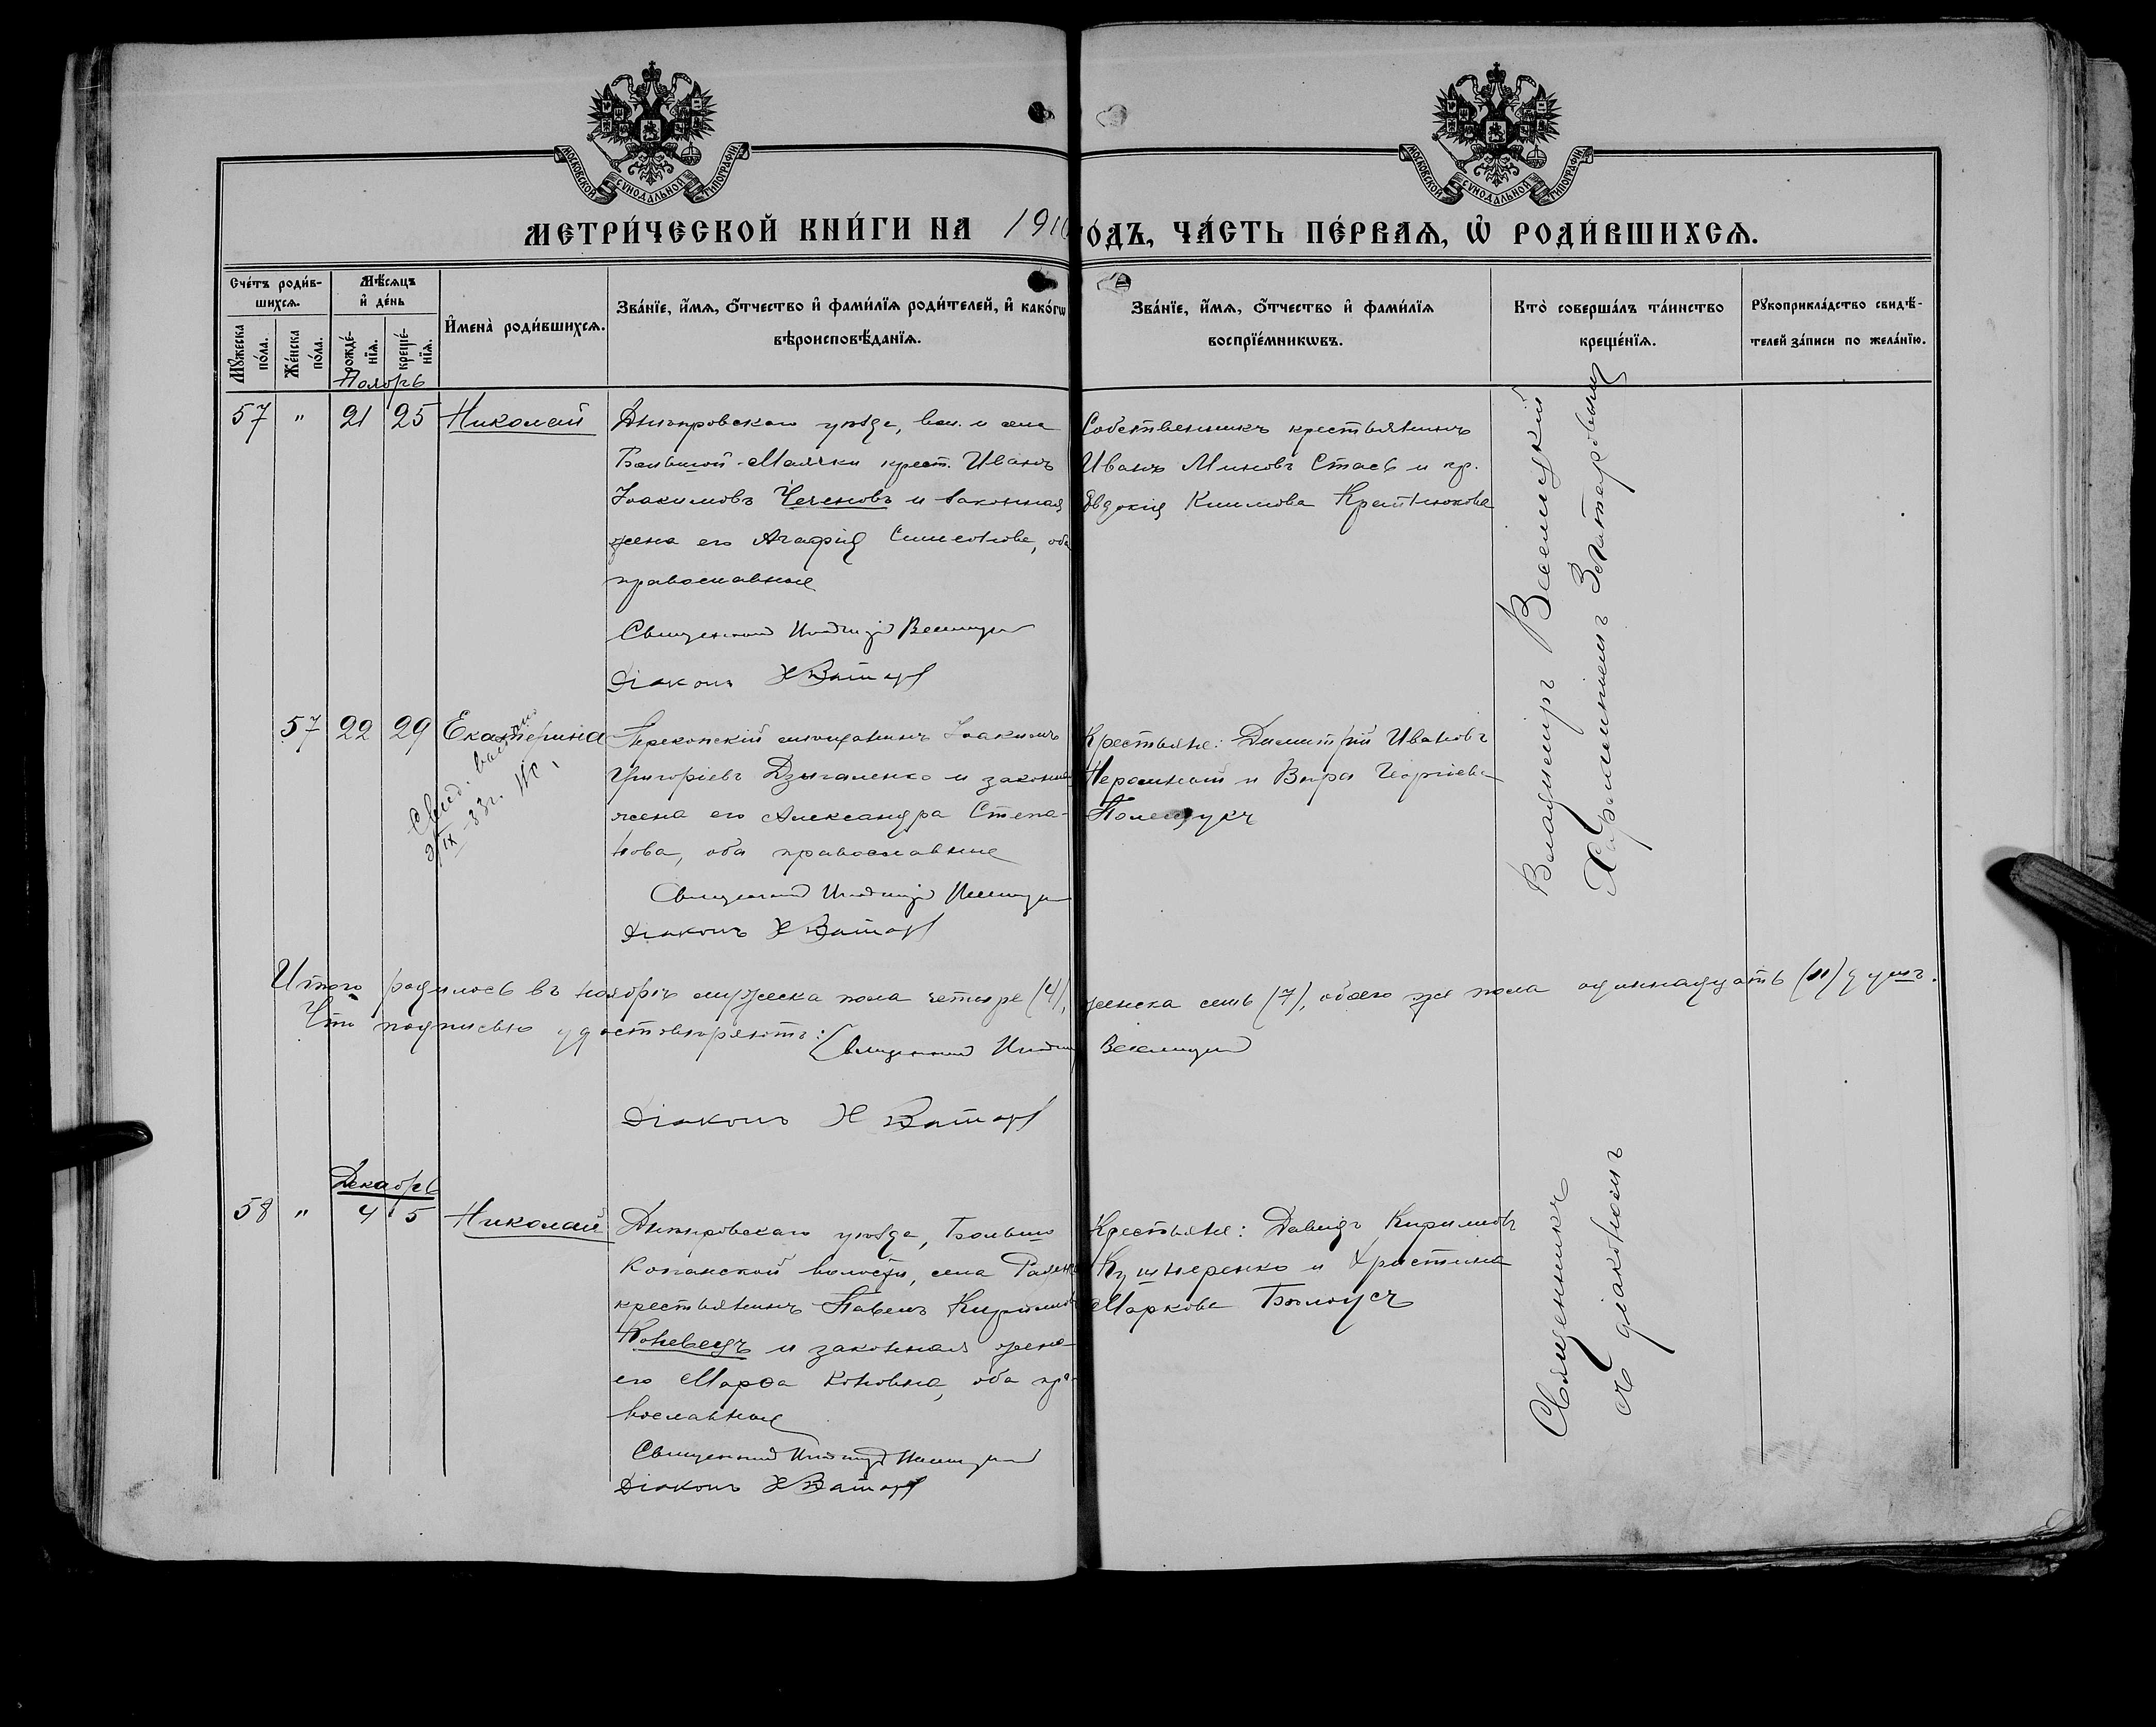 МОСКОВСКОЙ СѴНОДАЛЬНОЙ ТИПОГРАФІИ
МОСКОВСКОЙ СѴНОДАЛЬНОЙ ТИПОГРАФІИ
МЕТРИ́ЧЕСКОЙ КНИ́ГИ НА 1916 ОДЪ, ЧА́СТЬ ПЕ́РВАѦ, Ѡ҆ РОДИ́ВШИХСѦ.
Сче́тъ роди́в-
шихсѧ.
Мѣ́сѧцъ
и҆ де́нь
Мꙋ́жеска
по́ла.
Же́нска
по́ла.
рожде́-
нїѧ.
креще́-
нїѧ.
И҆мена̀ роди́вшихсѧ.
Зва́нїе, и҆́мѧ, ѻ҆́тчество и҆ фами́лїѧ роди́телей, и҆ како́гѡ
вѣроисповѣ́данїѧ.
Зва́нїе, и҆́мѧ, ѻ҆́тчество и҆ фами́лїѧ
воспрїе́мникѡвъ.
Кто̀ соверша́лъ та́инство
креще́нїѧ.
Рꙋкоприкла́дство свидѣ́-
телей за́писи по жела́нїю.
Ноябрь
57 " 21 25 Николай
Днѣпровскаго уѣзда, вол. и села
Большой-Маячки крест. Иванъ
Іоакимовъ Чеченовъ и законная
жена его Агафія Симеонова, оба
православные
Священникъ
Діаконъ Х Ватаръ
Собственникъ крестьянинъ
Иванъ Миновъ Стась и кр.
Евдокія Климова
Владимиръ
Харалампіемъ
57 22 29 Екатерина
Свид.
2/IX-33г.
Перекопскій мѣщанинъ Іоакимъ
Григоріевъ Дзыгаленко и законная
жена его Александра Степа-
нова, оба православные
Священникъ
Діаконъ Х Ватаръ
Крестьяне: Димитрій Ивановъ
и Вѣра Георгіева
Полещукъ
Итого родилось въ ноябрѣ мужеска пола четыре (4), женска семь (7), обоего же пола одиннадцать (11) душъ.
Что подписью удостовѣряютъ: Священникъ
Діаконъ Х Ватаръ
Декабрь
58 " 4 5 Николай
Днѣпровскаго уѣзда, Больше
Копанской волости, села
крестьянинъ Павелъ Кирилловъ
Коневецъ и законная жена
его Марѳа Кононовна, оба пра-
вославные
Священникъ
Діаконъ Х Ватаръ
Крестьяне: Давидъ Кирилловъ
Кушнеренко и Христина
Маркова Бѣлоусъ
Священникъ
съ діакономъ